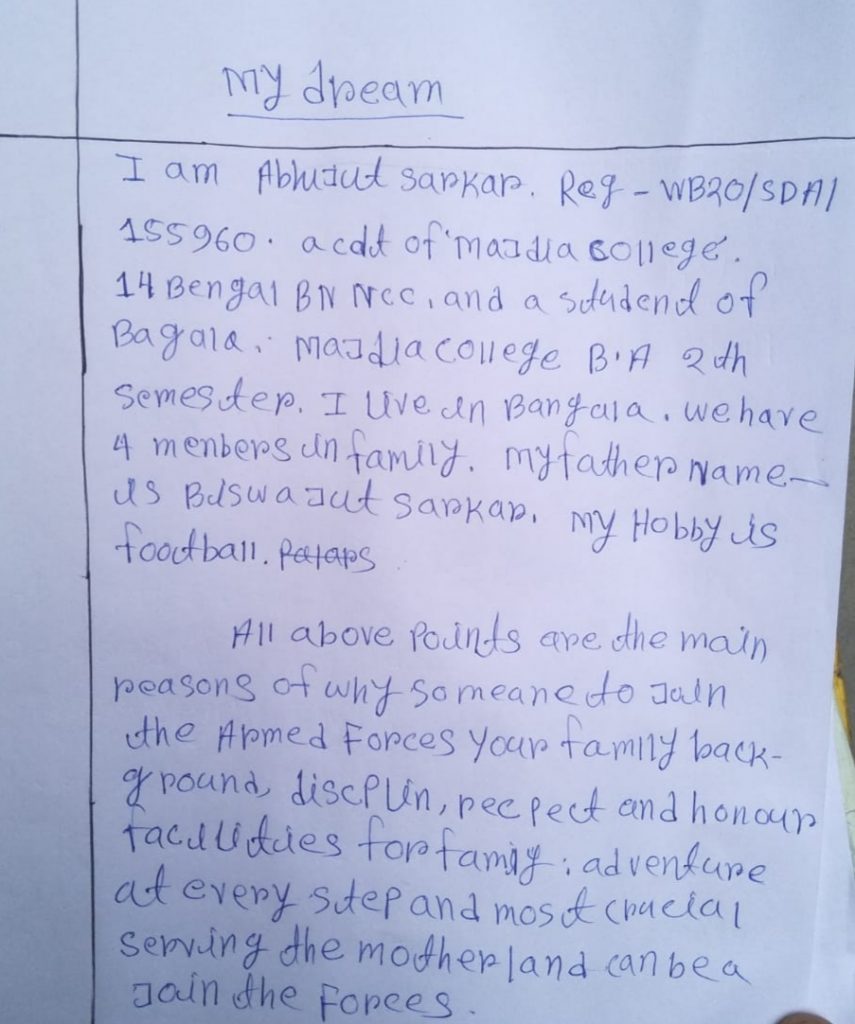 My dream
I am Abhijit sarkar. Reg - WB20/SDA/
155960. a cdt of majdia college.
14 Bengal BN NCC, and a student of
Bagala. majdia college B.A 2th
semester. I live in Bangala. we have
4 menbers in family. my father Name
is Biswajit sarkar. my Hobby is
football.
All above Points are the main
reasons of why someane to Join
the Armed Forces your family back-
ground, discplin, recpect and honour
facilities for family; adventure
at every step and most crucial
serving the motherland can be a
Join the Forces.